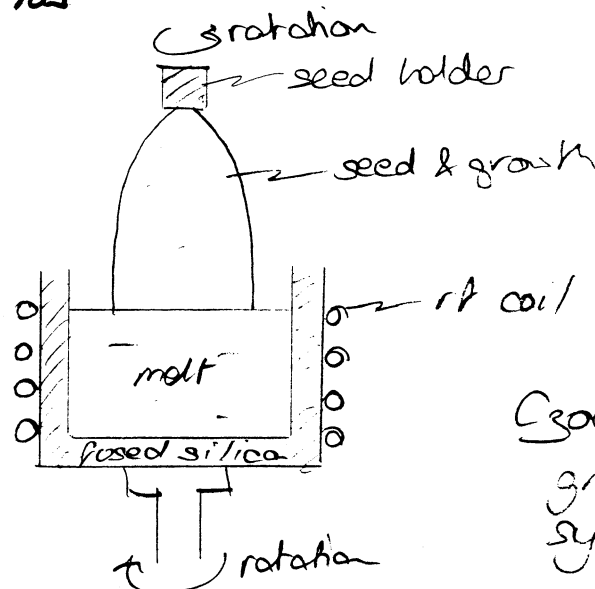 rotation
seed holder
seed & growth
rf coil
melt
fused silica
rotation